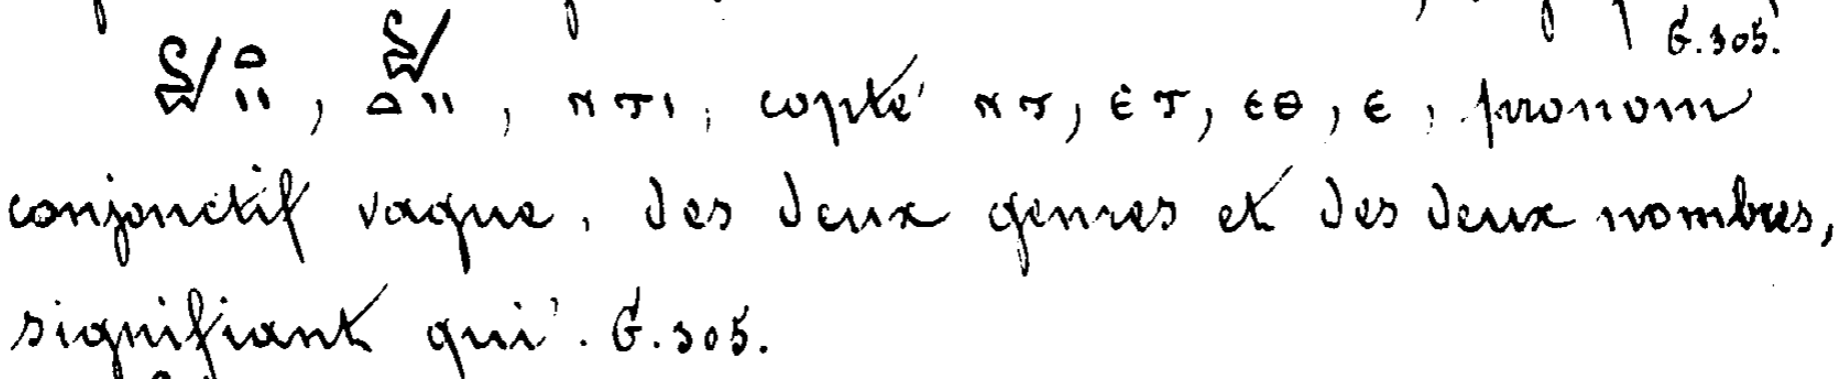 G. 305.
, , ⲛⲧⲓ, copte ⲛⲧ, ⲉⲧ, ⲉⲑ, ⲉ, pronom
conjonctif vague, des deux genres et des deux nombres,
signifiant qui. G. 305.